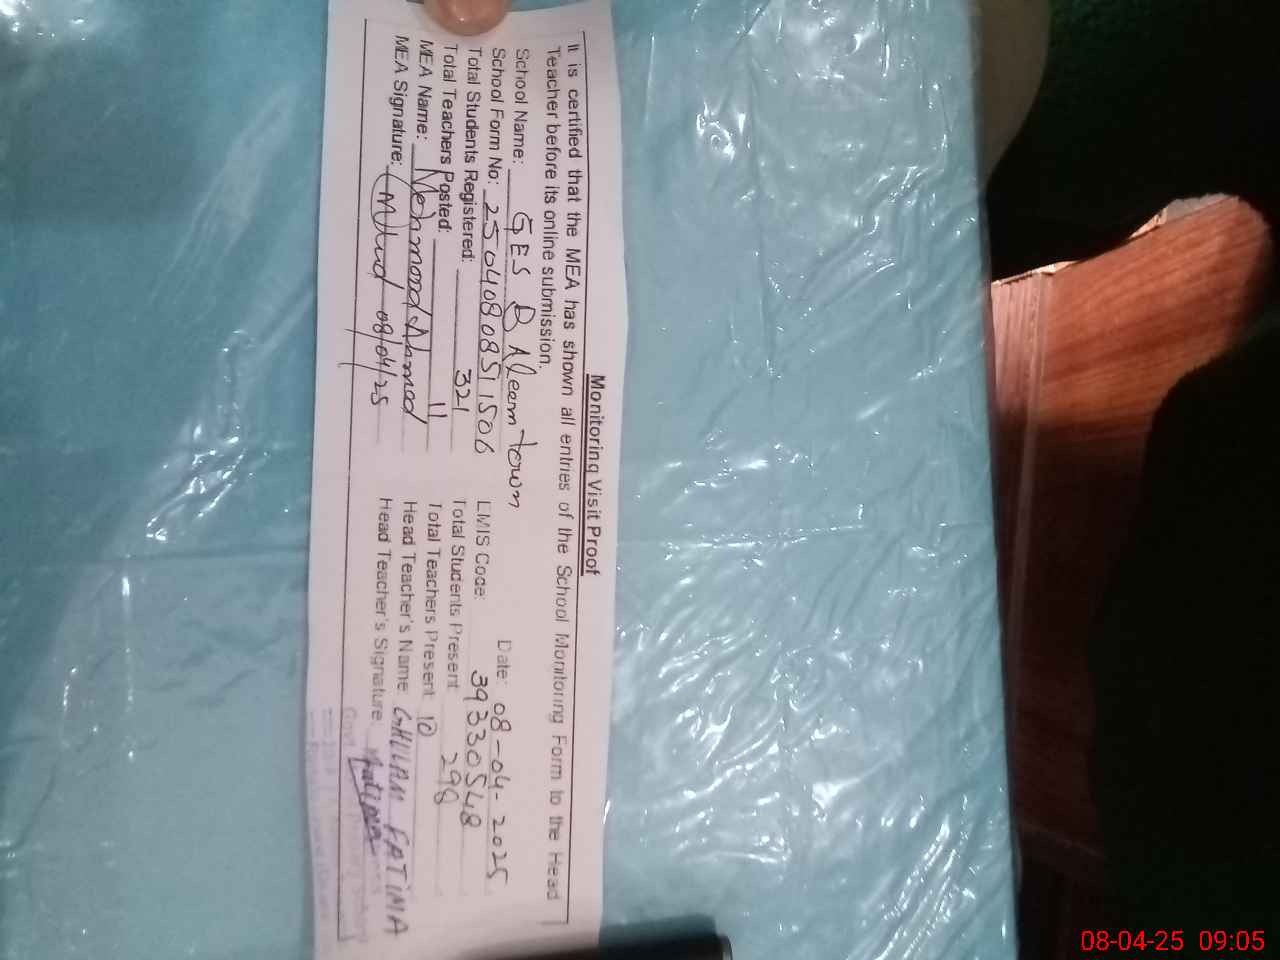 Monitoring Visit Proof
It is certified that the MEA has shown all entries of the School Monitoring Form to the Head
Teacher before its online submission.
Date: 08-04-2025
School Name: GES Q Aleem town
School Form No: 25040808511506 EMIS Code: 39330548
Total Students Registered: 321 Total Students Present 298
Total Teachers Posted: 11 Total Teachers Present 10
MEA Name: Mehmood Ahmed Head Teacher's Name GHULAM FATIMA
MEA Signature: 08/04/25 Head Teacher's Signature
08-04-25 09:05